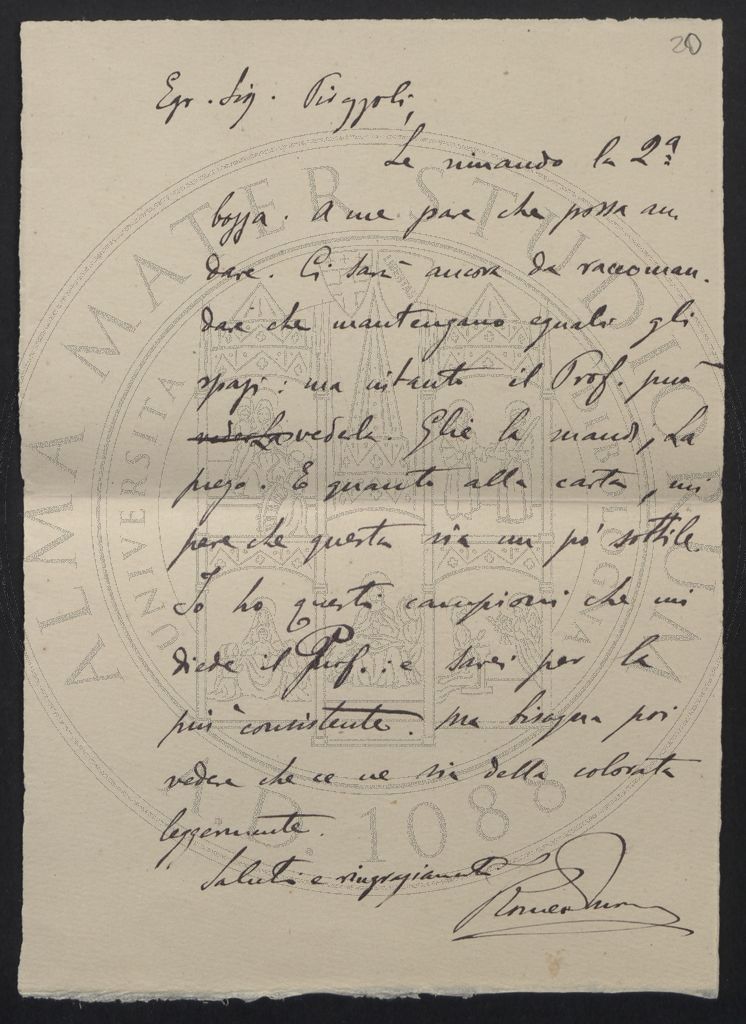 20
Egr. Sig. Pirazzoli,
Le rimando la 2ª
bozza. A me pare che possa an-
dare. Ci sarà ancora da raccoman-
dare che mantengano eguali gli
spazi: ma intanto il Prof. può
vederla. Glie la mandi, La
prego. E quanto alla carta, mi
pare che questa sia un pò sottile.
Io ho questi campioni che mi
diede il Prof.: e sarei per la
più consistente. Ma bisogna poi
vedere che ce ne sia della colorata
leggermente.
Saluti e ringraziamenti
Romeo
ALMA MATER STUDIORUM
UNIVERSITA
BOLOGNA
A.D. 1088